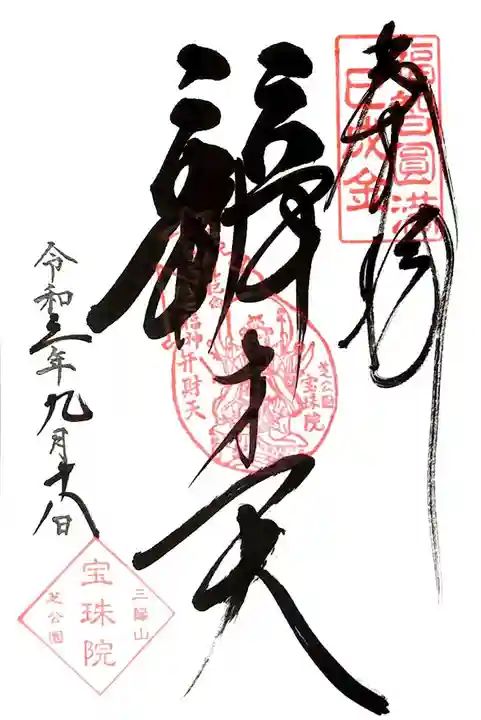 奉拝
福智圓満
巳成金
辯才天
福神弁財天
芝公園
宝珠院
令和三年九月十八日
三縁山
宝珠院
芝公園